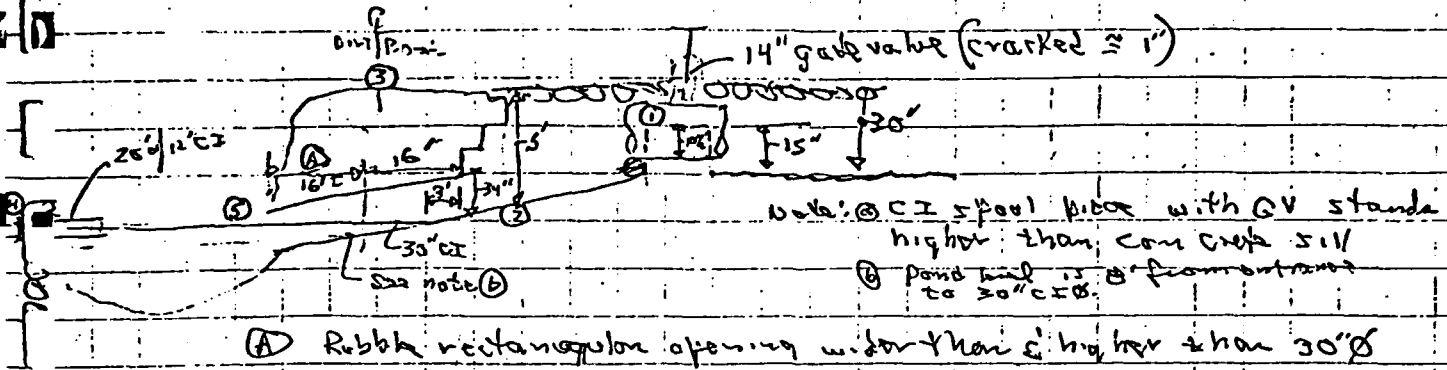 14" gate valve (cracked ≅ 1")
③
①
30"
15"
20'ø 12" CI
Ⓐ 16"
16" ID
5'
34"
⑤
②
30" CI
See note ⓑ
Note: ⓐ CI spool piece with GV stands
higher than concrete sill
ⓑ Pond
to 30" CIØ.
Ⓐ Rubble rectangular opening wider than & higher than 30"Ø